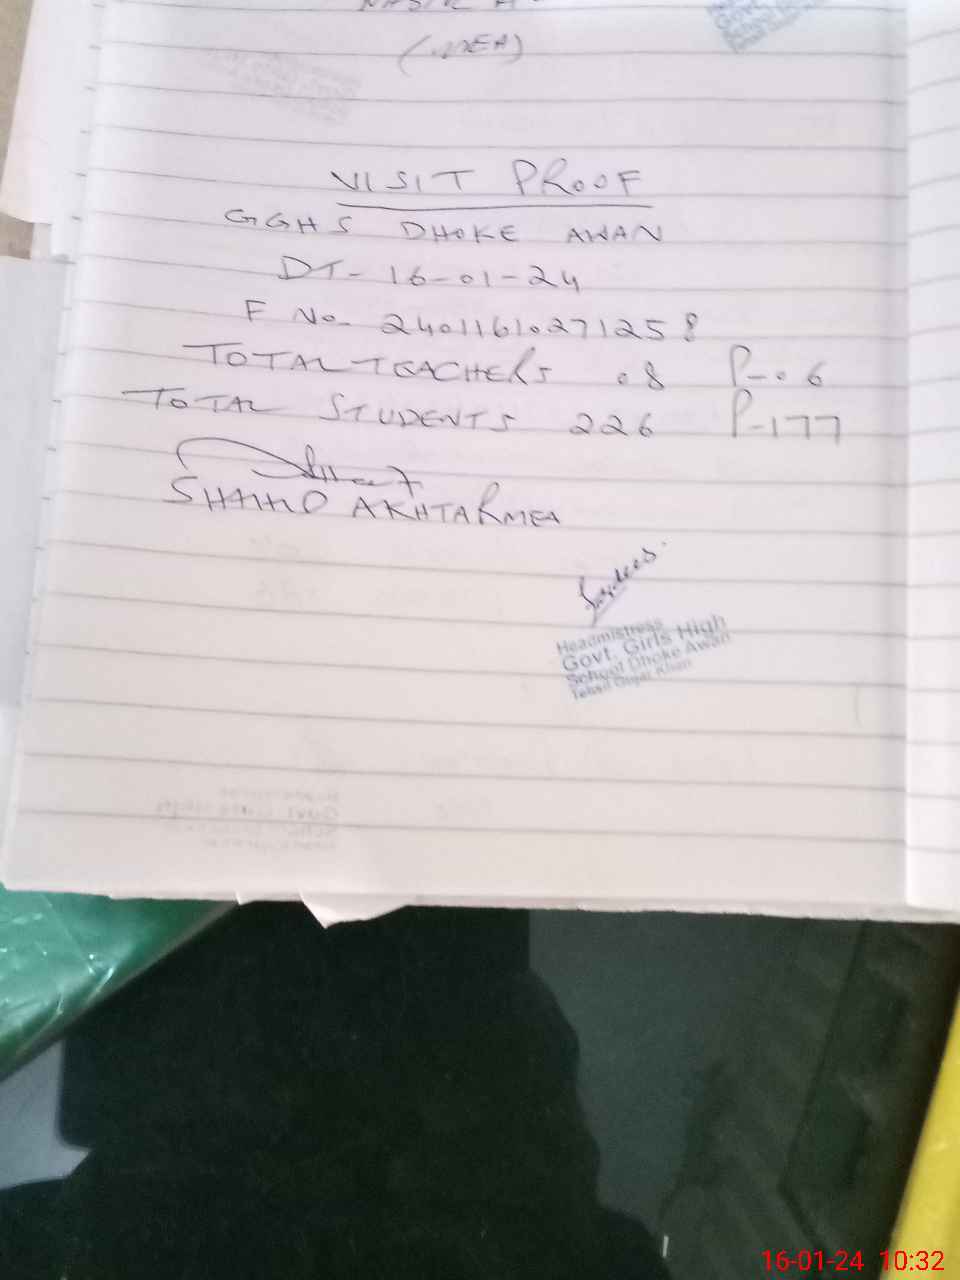 (MEA)
VISIT PROOF
GGHS DHOKE AWAN
DT- 16-01-24
F No- 24011610271258
TOTAL TEACHERS 08 P-06
TOTAL STUDENTS 226 P-177
AKHTAR MEA
Headmistress
Govt. Girls High
School Dhoke Awan
Tehsil Gujar Khan
16-01-24 10:32